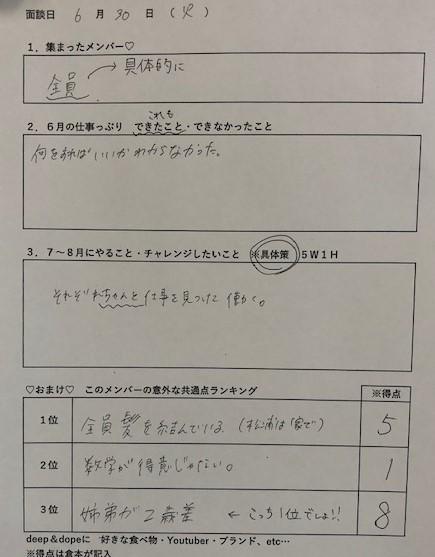 面談日 6 月 30 日 (火)
1．集まったメンバー♡
全員 → 具体的に
これも
2．６月の仕事っぷり できたこと・できなかったこと
何をすればいいかわからなかった。
3．７～８月にやること・チャレンジしたいこと ※具体策 ５W１H
それぞれちゃんと仕事を見つけて働く。
♡おまけ♡ このメンバーの意外な共通点ランキング ※得点
1位 全員髪を結んでいる (松浦は「家で」) 5
2位 数学が得意じゃない。 1
3位 姉弟が2歳差 ← こっち1位でしょ!! 8
deep＆dopeに 好きな食べ物・Youtuber・ブランド、etc…
※得点は倉本が記入